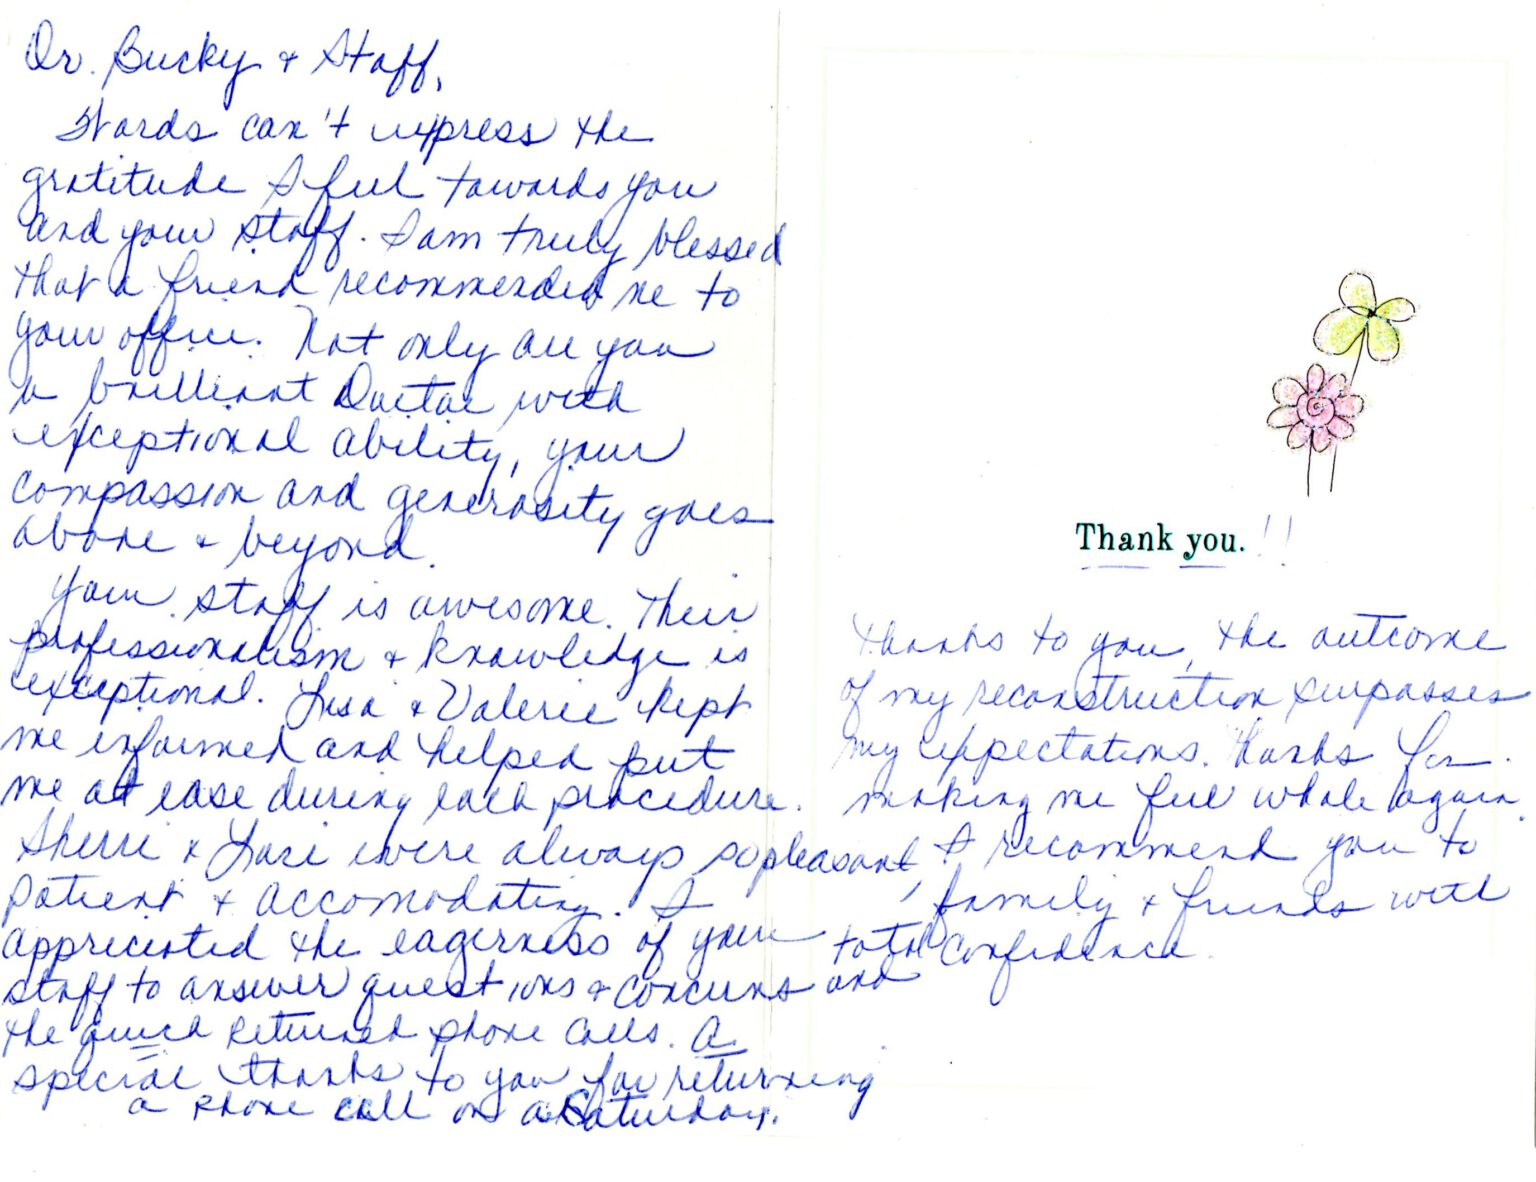 Dr. Bucky & Staff,
Words can't express the
gratitude I feel towards you
and your staff. I am truly blessed
that a friend recommended me to
your office. Not only are you
a brilliant Doctor with
exceptional ability, your
compassion and generosity goes
above & beyond.
Your staff is awesome. Their
professionalism & knowledge is
exceptional. Lisa & Valerie kept
me informed and helped put
me at ease during each procedure.
Sherri & Lori were always so pleasant,
patient & accomodating. I
appreciated the eagerness of your
staff to answer questions & concerns and
the quick returned phone calls. A
special thanks to you for returning
a phone call on a Saturday.
Thank you. !!
Thanks to you, the outcome
of my reconstruction surpasses
my expectations. Thanks for
making me feel whole again.
I recommend you to
family & friends with
total confidence.